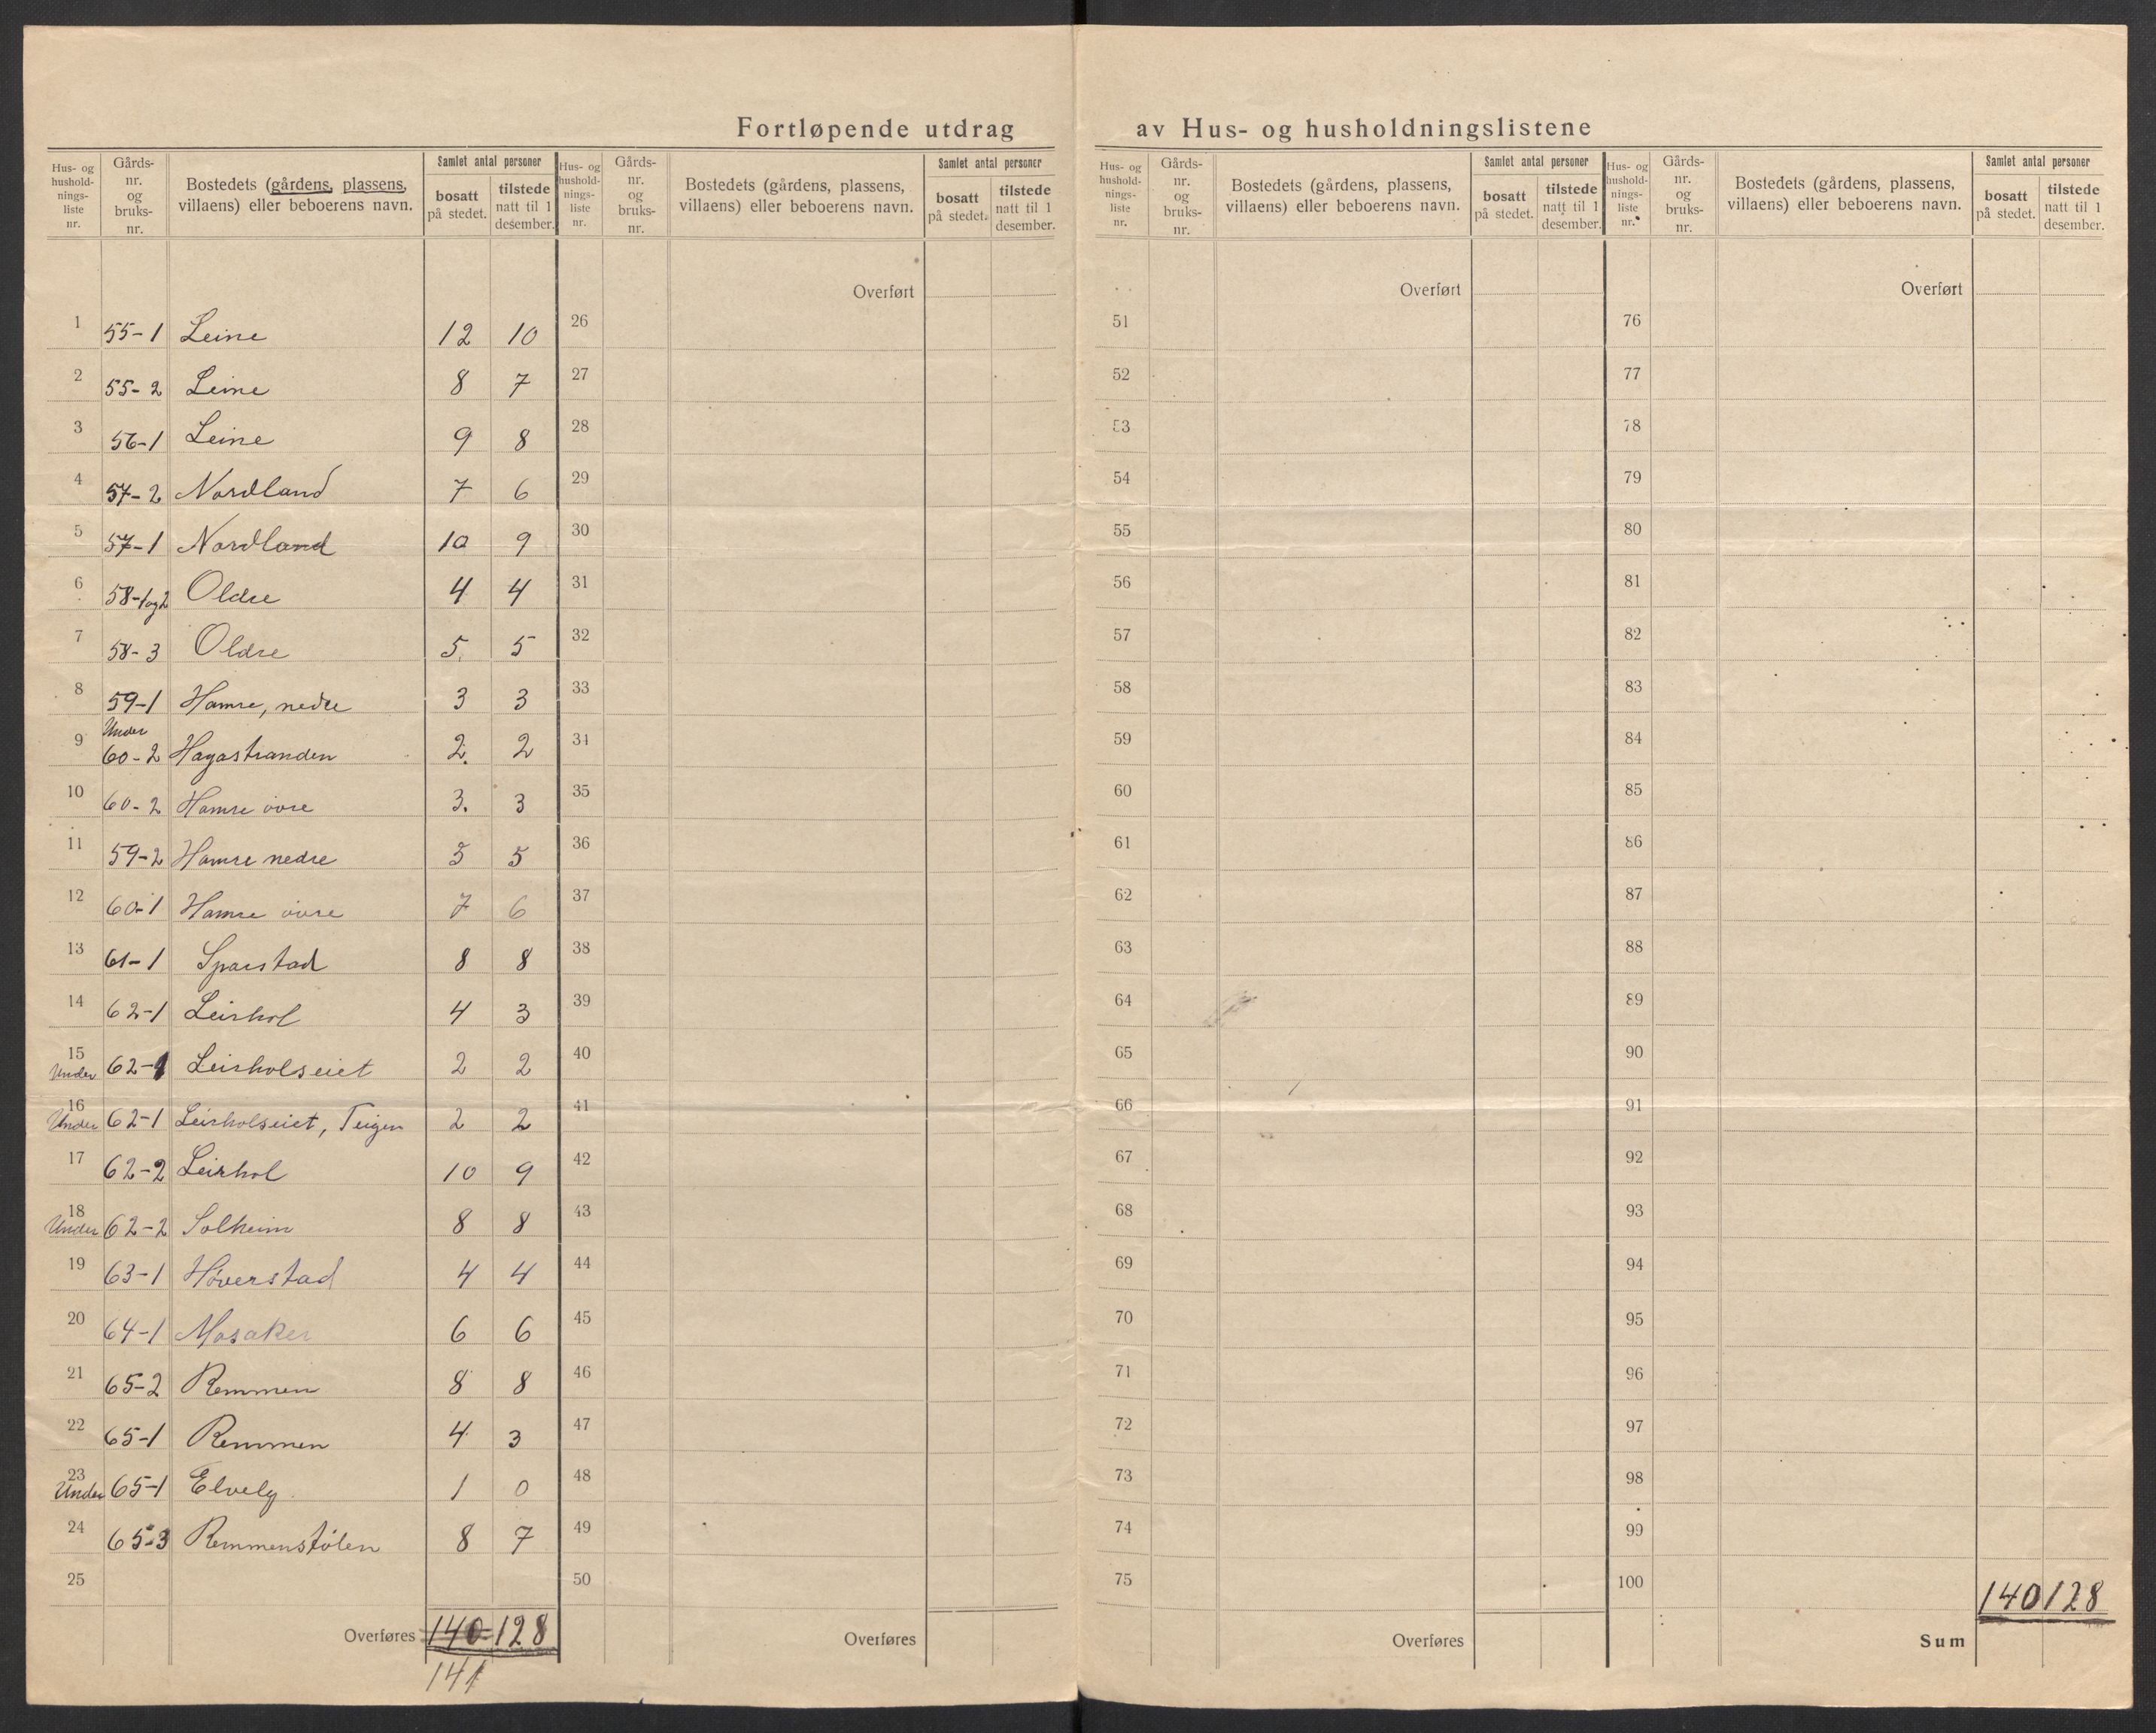 Fortløpende utdrag av Hus- og husholdningslistene
Hus- og hushold-nings-liste nr. | Gårds-nr. og bruks-nr. | Bostedets (gårdens, plassens, villaens) eller beboerens navn. | Samlet antal personer | bosatt på stedet. | tilstede natt til 1 desember.
1 55-1 Leine 12 10
2 55-2 Leine 8 7
3 56-1 Leine 9 8
4 57-2 Nordland 7 6
5 57-1 Nordland 10 9
6 58-1og2 Oldre 4 4
7 58-3 Oldre 5 5
8 59-1 Hamre, nedre 3 3
9 Under 60-2 Hagastranden 2 2
10 60-2 Hamre övre 3 3
11 59-2 Hamre nedre 5 5
12 60-1 Hamre övre 7 6
13 61-1 Sparstad 8 8
14 62-1 Leirhol 4 3
15 Under 62-1 Leirholseiet 2 2
16 Under 62-1 Leirholseiet, Teigen 2 2
17 62-2 Leirhol 10 9
18 Under 62-2 Solheim 8 8
19 63-1 Höverstad 4 4
20 64-1 Mosaker 6 6
21 65-2 Remmen 8 8
22 65-1 Remmen 4 3
23 Under 65-1 Elvely 1 0
24 65-3 Remmenstølen 8 7
25
Overføres 140 128
141
Hus- og hushold-nings-liste nr. | Gårds-nr. og bruks-nr. | Bostedets (gårdens, plassens, villaens) eller beboerens navn. | Samlet antal personer | bosatt på stedet. | tilstede natt til 1 desember.
Overført
26
27
28
29
30
31
32
33
34
35
36
37
38
39
40
41
42
43
44
45
46
47
48
49
50
Overføres
Hus- og hushold-nings-liste nr. | Gårds-nr. og bruks-nr. | Bostedets (gårdens, plassens, villaens) eller beboerens navn. | Samlet antal personer | bosatt på stedet. | tilstede natt til 1 desember.
Overført
51
52
53
54
55
56
57
58
59
60
61
62
63
64
65
66
67
68
69
70
71
72
73
74
75
Overføres
Hus- og hushold-nings-liste nr. | Gårds-nr. og bruks-nr. | Bostedets (gårdens, plassens, villaens) eller beboerens navn. | Samlet antal personer | bosatt på stedet. | tilstede natt til 1 desember.
Overført
76
77
78
79
80
81
82
83
84
85
86
87
88
89
90
91
92
93
94
95
96
97
98
99
100
140 128
Sum